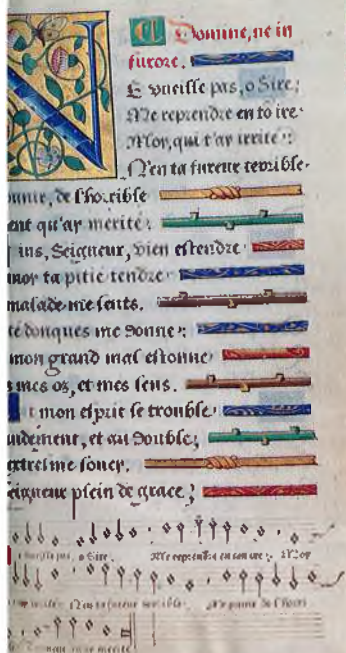 Domine, ne in
furore.
E vueille pas, o Sire,
Me reprendre en tō ire
Moy, qui t'ay irrité:
N'en ta fureur terrible
punir, de l'horrible
ent qu'ay merité:
ins, Seigneur, vien estendre
moy ta pitié tendre
malade me sents.
té donques me donne:
mon grand mal estonne
s mes oz, et mes sens.
t mon esprit se trouble
andement, et au double,
extresme soucy.
eigneur plein de grace,
pas, o Sire, Me reprendre en ton ire: Moy
N'en ta fureur terrible Me punir de l'horri
merité